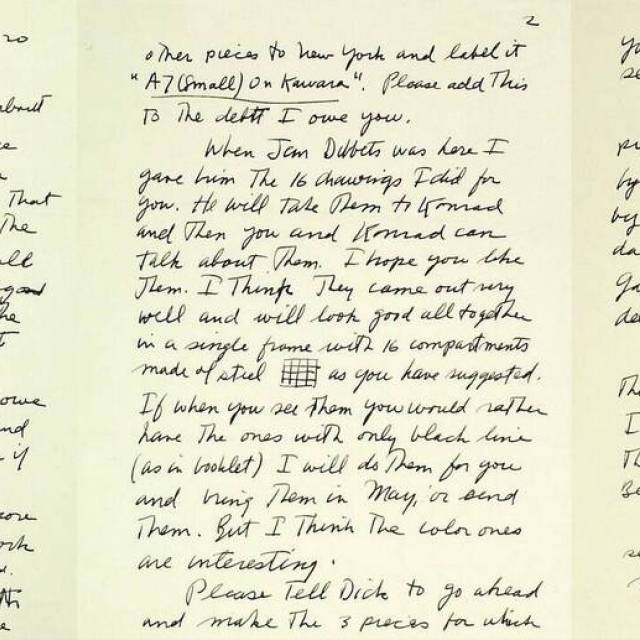 20
about
That
The
owe
and
if
2
other pieces to New York and label it
"A7 (Small) On Kawara". Please add This
To The debt I owe you.
When Jan Dibbets was here I
gave him The 16 drawings I did for
you. He will take Them to Konrad
and Then you and Konrad can
talk about Them. I hope you like
Them. I Think They came out very
well and will look good all together
in a single frame with 16 compartments
made of steel as you have suggested.
If when you see them you would rather
have The ones with only black line
(as in booklet) I will do Them for you
and bring Them in May, or send
Them. But I Think The color ones
are interesting.
Please Tell Dick to go ahead
and make The 3 pieces for which
by
by
de
I